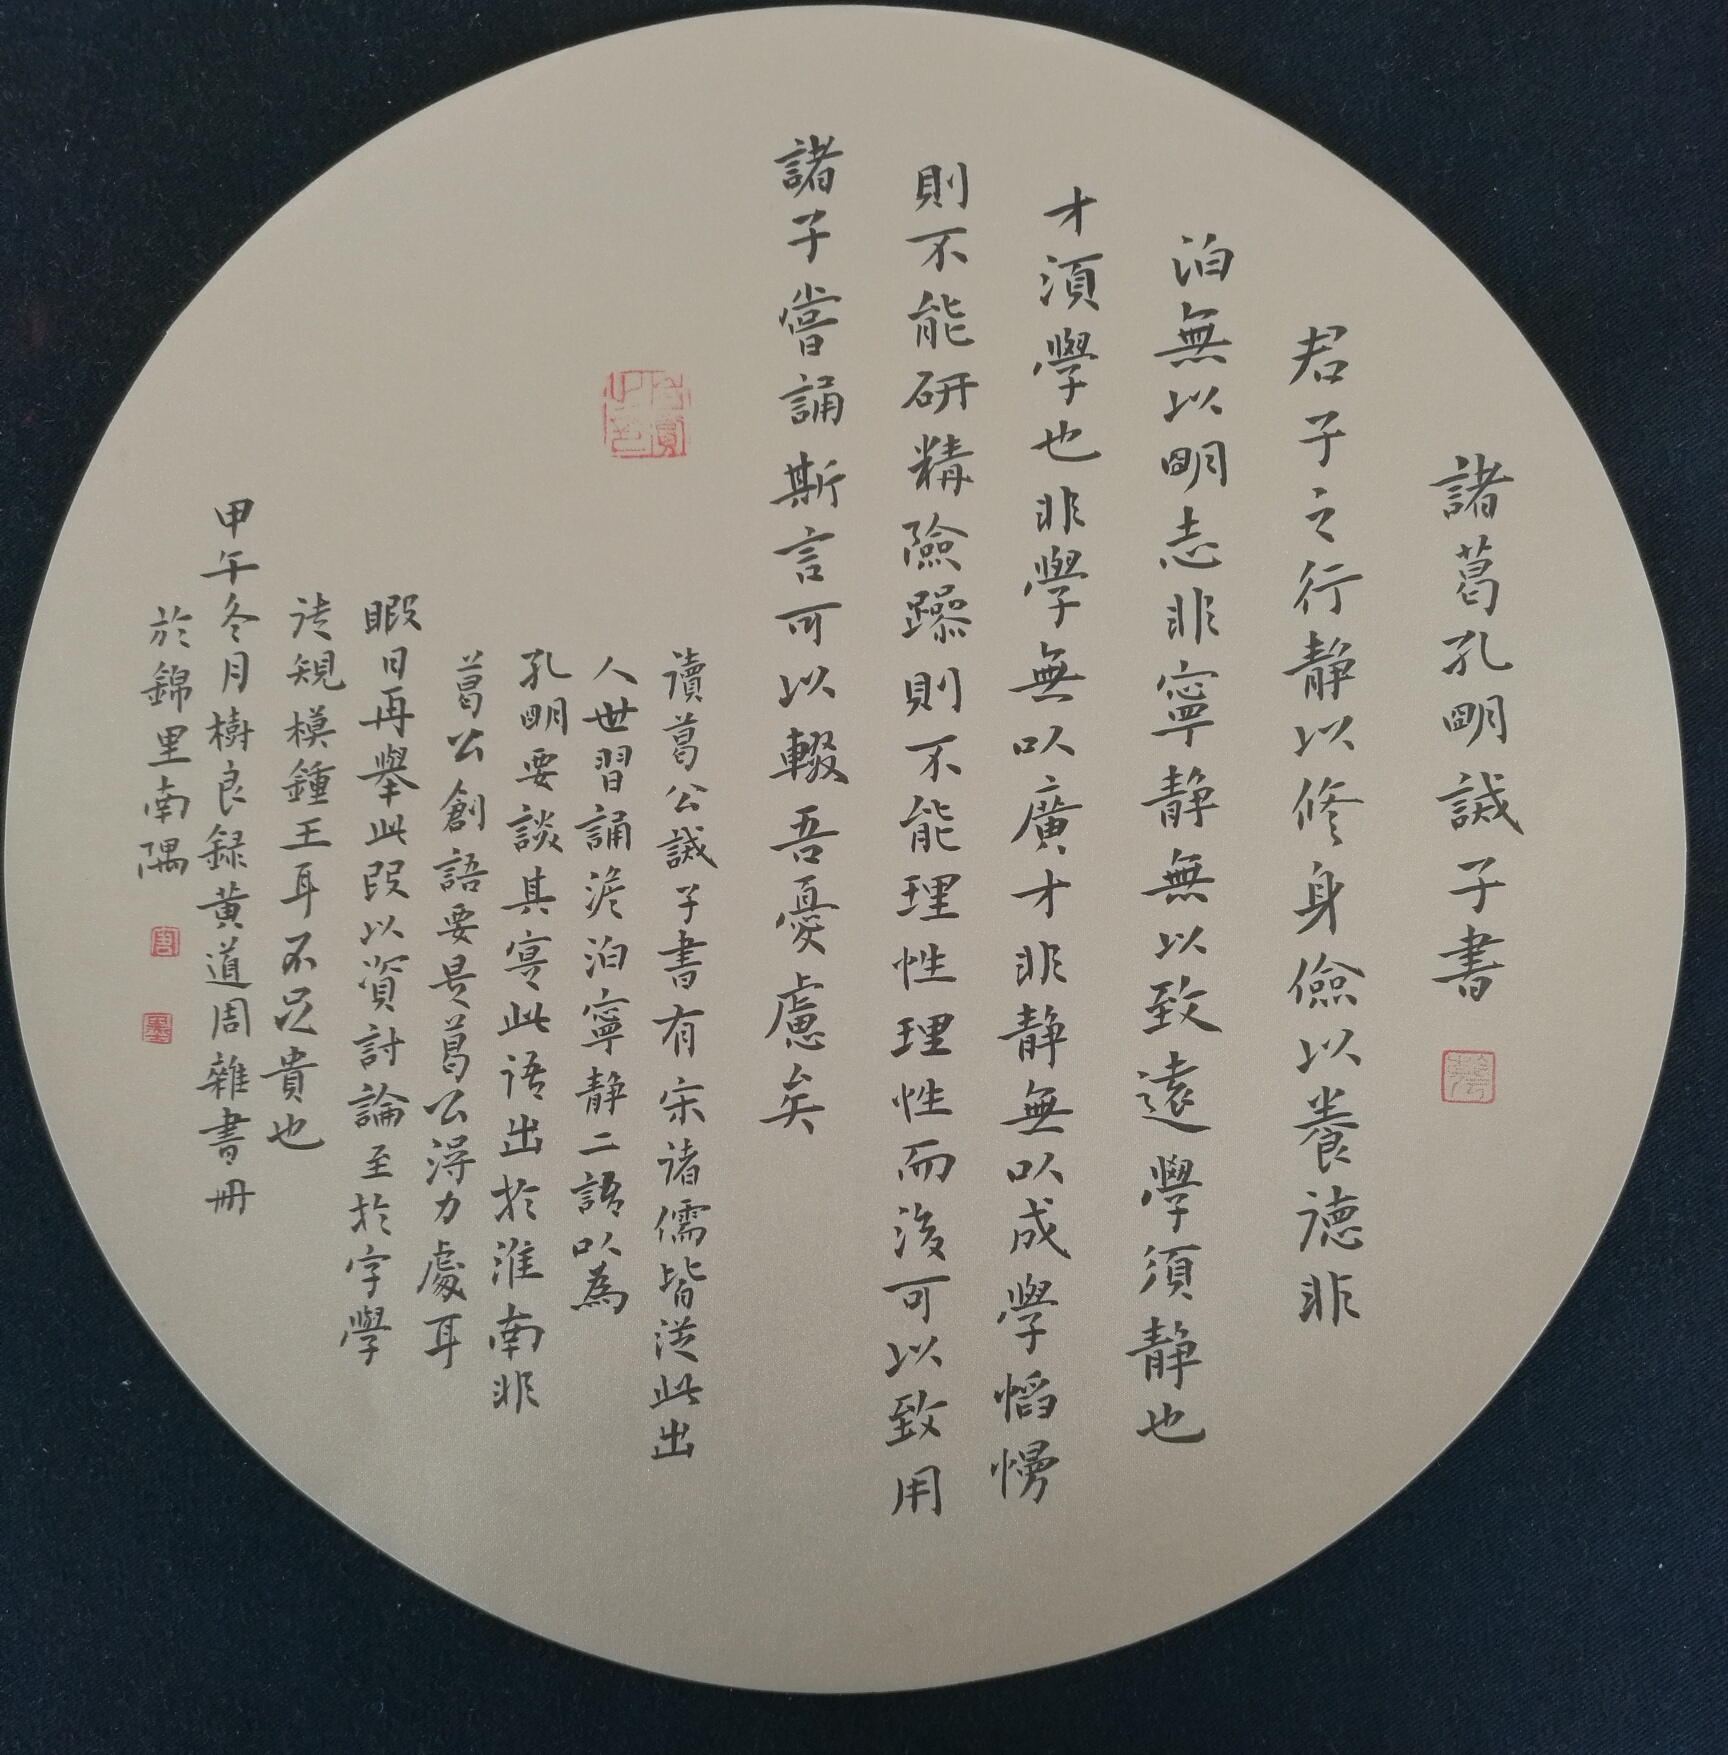 諸葛孔明誡子書
君子之行静以修身儉以養德非
泊無以明志非寧静無以致遠學須静也
才須學也非學無以廣才非静無以成學慆慢
則不能研精險躁則不能理性理性而後可以致用
諸子嘗誦斯言可以輟吾憂慮矣
讀葛公誡子書有宋诸儒皆從此出
人世習誦澹泊寧静二語以為
孔明要談其寔此语出於淮南非
葛公創語要是葛公得力處耳
暇日再舉此段以資討論至於字學
诗規模鍾王耳不足貴也
甲午冬月樹良録黄道周雜書冊
於錦里南隅